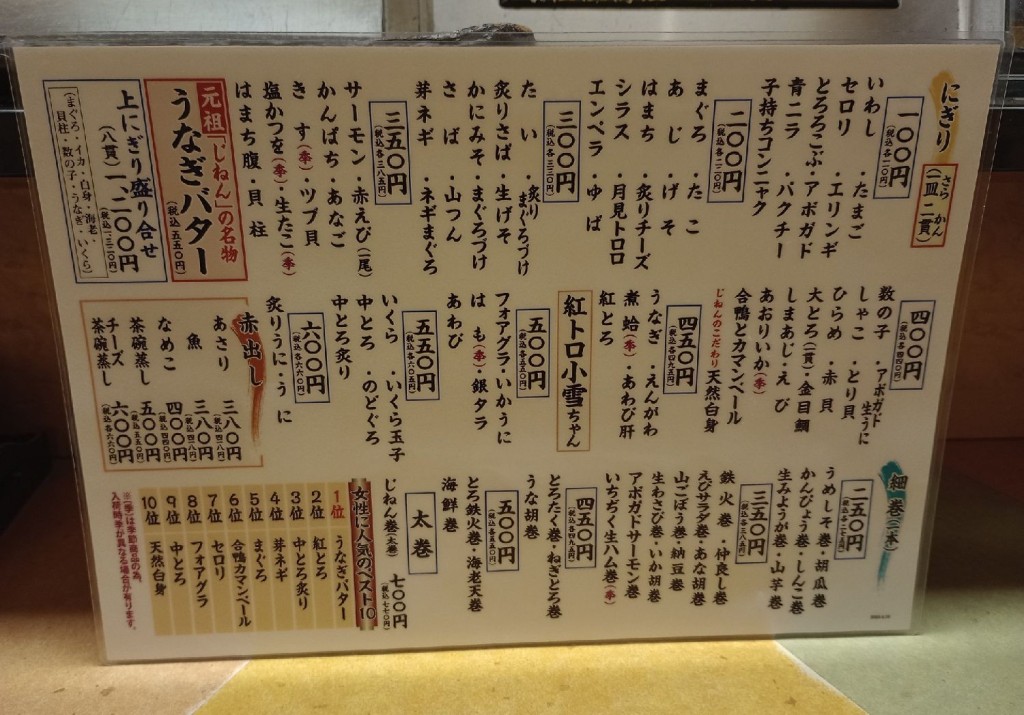 にぎり
さら かん
(一皿 二貫)
一〇〇円
(税込各一一〇円)
いわし ・たまご
セロリ ・エリンギ
とろろこぶ・アボガド
青ニラ ・パクチー
子持ちコンニャク
二〇〇円
(税込各二二〇円)
まぐろ ・たこ
あじ ・げそ
はまち ・炙りチーズ
シラス ・月見トロロ
エンペラ ・ゆば
三〇〇円
(税込各三三〇円)
たい ・炙りまぐろづけ
炙りさば ・生げそ
かにみそ・まぐろづけ
さば ・山つん
芽ネギ ・ネギまぐろ
三五〇円
(税込各三八五円)
サーモン・赤えび(二尾)
かんぱち・あなご
きす(季)・ツブ貝
塩かつを(季)・生たこ(季)
はまち腹・貝柱
元祖「じねん」の名物
うなぎバター
(税込五五〇円)
上にぎり盛り合せ
(八貫)一、二〇〇円
(税込一、三二〇円)
(まぐろ・イカ・白身・海老・
貝柱・数の子・うなぎ・いくら)
四〇〇円
(税込各四四〇円)
数の子 ・アボガド生うに
しゃこ ・とり貝
ひらめ ・赤貝
大とろ(一貫)・金目鯛
しまあじ・えび
あおりいか(季)
合鴨とカマンベール
じねんのこだわり天然白身
四五〇円
(税込各四九五円)
うなぎ ・えんがわ
煮蛤(季)・あわび肝
紅とろ
紅トロ小雪ちゃん
五〇〇円
(税込各五五〇円)
フォアグラ・いかうに
はも(季)・銀タラ
あわび
五五〇円
(税込各六〇五円)
いくら ・いくら玉子
中とろ ・のどぐろ
中とろ炙り
六〇〇円
(税込各六六〇円)
炙りうに・うに
赤出し
あさり 三八〇円
(税込四一八円)
魚 三八〇円
(税込四一八円)
なめこ 四〇〇円
(税込四四〇円)
茶碗蒸し 五〇〇円
(税込五五〇円)
チーズ茶碗蒸し 六〇〇円
(税込各六六〇円)
細巻(二本)
二五〇円
(税込各二七五円)
うめしそ巻・胡瓜巻
かんぴょう巻・しんこ巻
生みょうが巻・山芋巻
三五〇円
(税込各三八五円)
鉄火巻 ・仲良し巻
えびサラダ巻・あな胡巻
山ごぼう巻・納豆巻
生わさび巻・いか胡巻
アボガドサーモン巻
いちぢく生ハム巻(季)
四五〇円
(税込各四九五円)
とろたく巻・ねぎとろ巻
うな胡巻
五〇〇円
(税込各五五〇円)
とろ鉄火巻・海老天巻
海鮮巻
太巻
じねん巻(太巻) 七〇〇円
(税込七七〇円)
女性に人気のベスト10
1位 うなぎバター
2位 紅とろ
3位 中とろ炙り
4位 芽ネギ
5位 まぐろ
6位 合鴨カマンベール
7位 セロリ
8位 フォアグラ
9位 中とろ
10位 天然白身
※(季)は季節商品の為、
入荷時季が異なる場合が有ります。